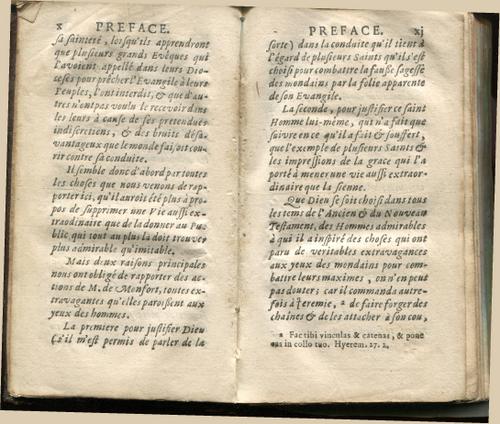 x PREFACE.
sa sainteté, lorsqu'ils apprendront
que plusieurs grands Evêques qui
l'avoient appellé dans leurs Dio-
ceses pour prêcher l'Evangile à leurs
Peuples, l'ont interdit, & que d'au-
tres n'ont pas voulu le recevoir dans
les leurs à cause de ses pretenduës
indiscretions, & des bruits desa-
vantageux que le monde faisoit cou-
rir contre sa conduite.
Il semble donc d'abord par toutes
les choses que nous venons de rap-
porter ici, qu'il auroit été plus à pro-
pos de supprimer une Vie aussi ex-
traordinaire que de la donner au Pu-
blic qui tout au plus la doit trouver
plus admirable qu'imitable.
Mais deux raisons principales
nous ont obligé de rapporter des ac-
tions de M. de Monfort, toutes ex-
travagantes qu'elles paroissent aux
yeux des hommes.
La premiere pour justifier Dieu
(s'il m'est permis de parler de la
PREFACE. xj
sorte) dans la conduite qu'il tient à
l'égard de plusieurs Saints qu'il s'est
choisi pour combattre la fausse sagesse
des mondains par la folie apparente
de son Evangile.
La seconde, pour justifier ce saint
Homme lui-même, qui n'a fait que
suivre en ce qu'il a fait & souffert,
que l'exemple de plusieurs Saints &
les impressions de la grace qui l'a
porté à mener une vie aussi extraor-
dinaire que la sienne.
Que Dieu se soit choisi dans tous
les tems de l'Ancien & du Nouveau
Testament, des Hommes admirables
à qui il a inspiré des choses qui ont
paru de veritables extravagances
aux yeux des mondains pour com-
battre leurs maximes, on n'en peut
pas douter; car il commanda autre-
fois à Jeremie, a de faire forger des
chaînes & de les attacher à son cou,
a Fac tibi vinculas & catenas, & pone
eas in collo tuo. Hyerem. 27. 2.